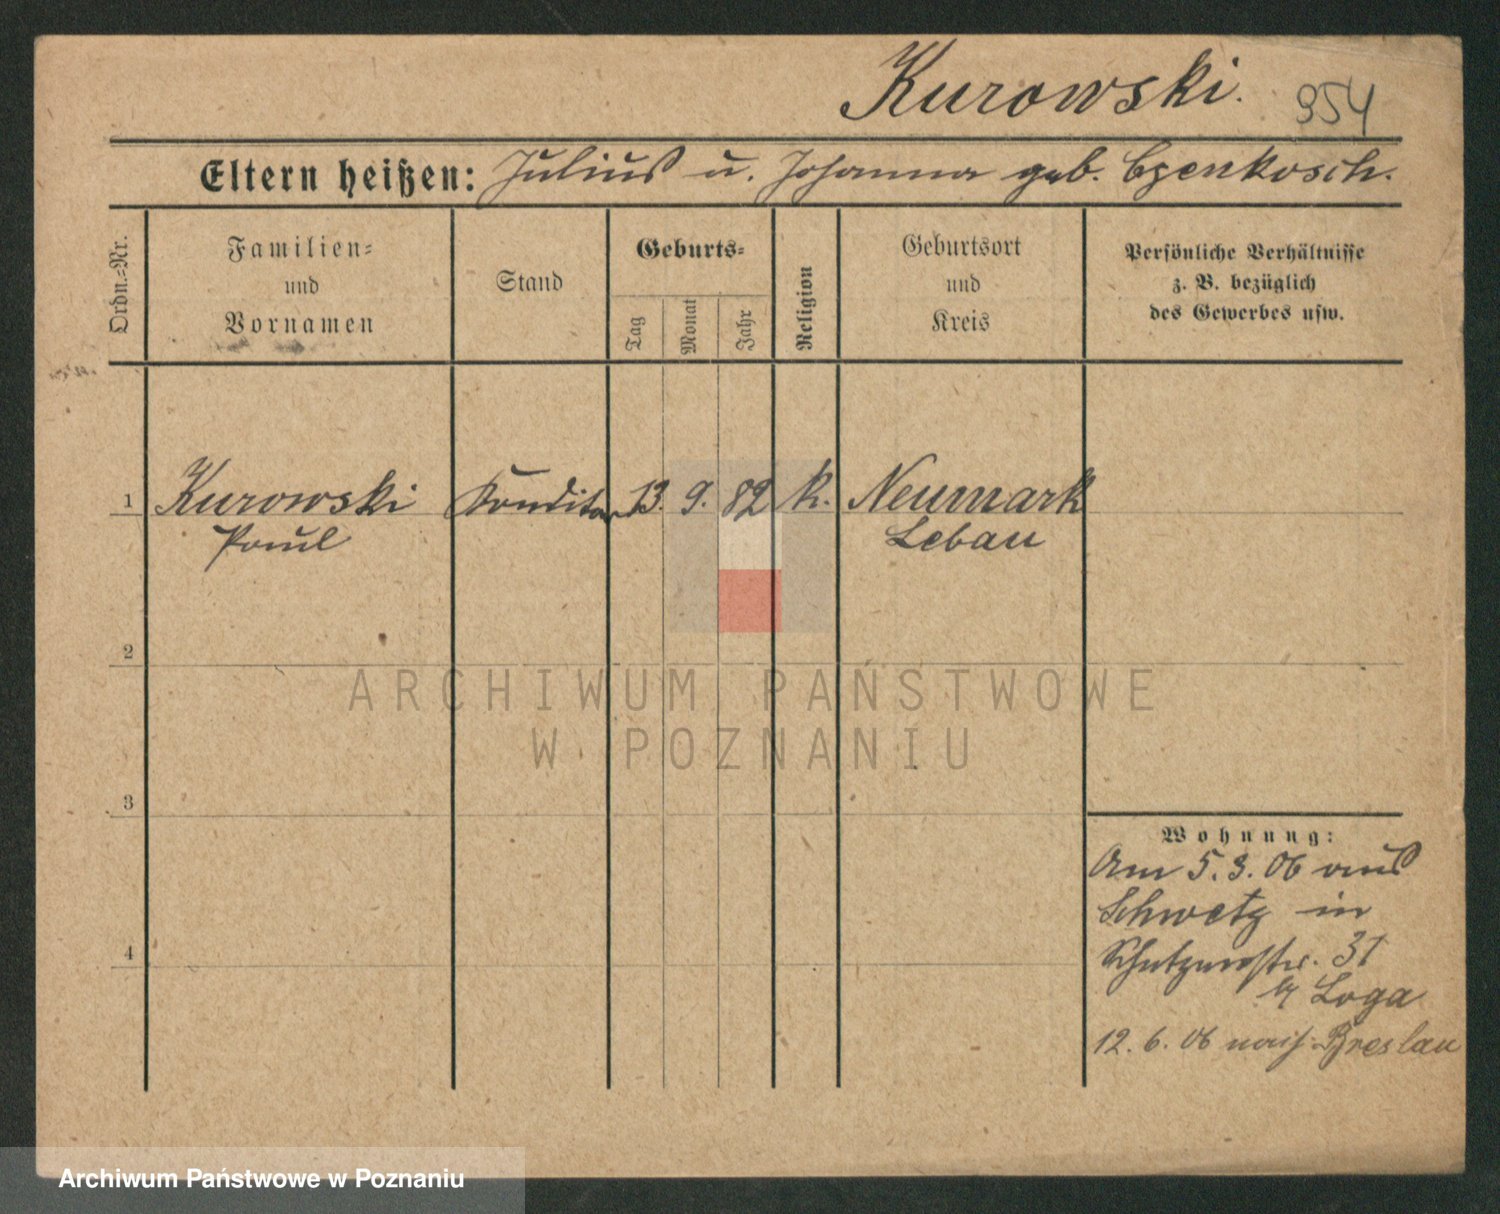 Kurowski. 954
Eltern heißen: Julius u. Johanna geb. Czenkosch.
Ordn.-Nr.
Familien-
und
Vornamen
Stand
Geburts-
Tag
Monat
Jahr
Religion
Geburtsort
und
Kreis
Persönliche Verhältnisse
z. B. bezüglich
des Gewerbes usw.
1 Kurowski Konditor 13. 9. 82 k. Neumark
Paul Lebau
2
ARCHIWUM PAŃSTWOWE
W POZNANIU
3
Wohnung:
Am 5.3.06 aus
Schwetz in
4
Schützenstr. 31
b/ Loga
12.6.06 nach Breslau
Archiwum Państwowe w Poznaniu